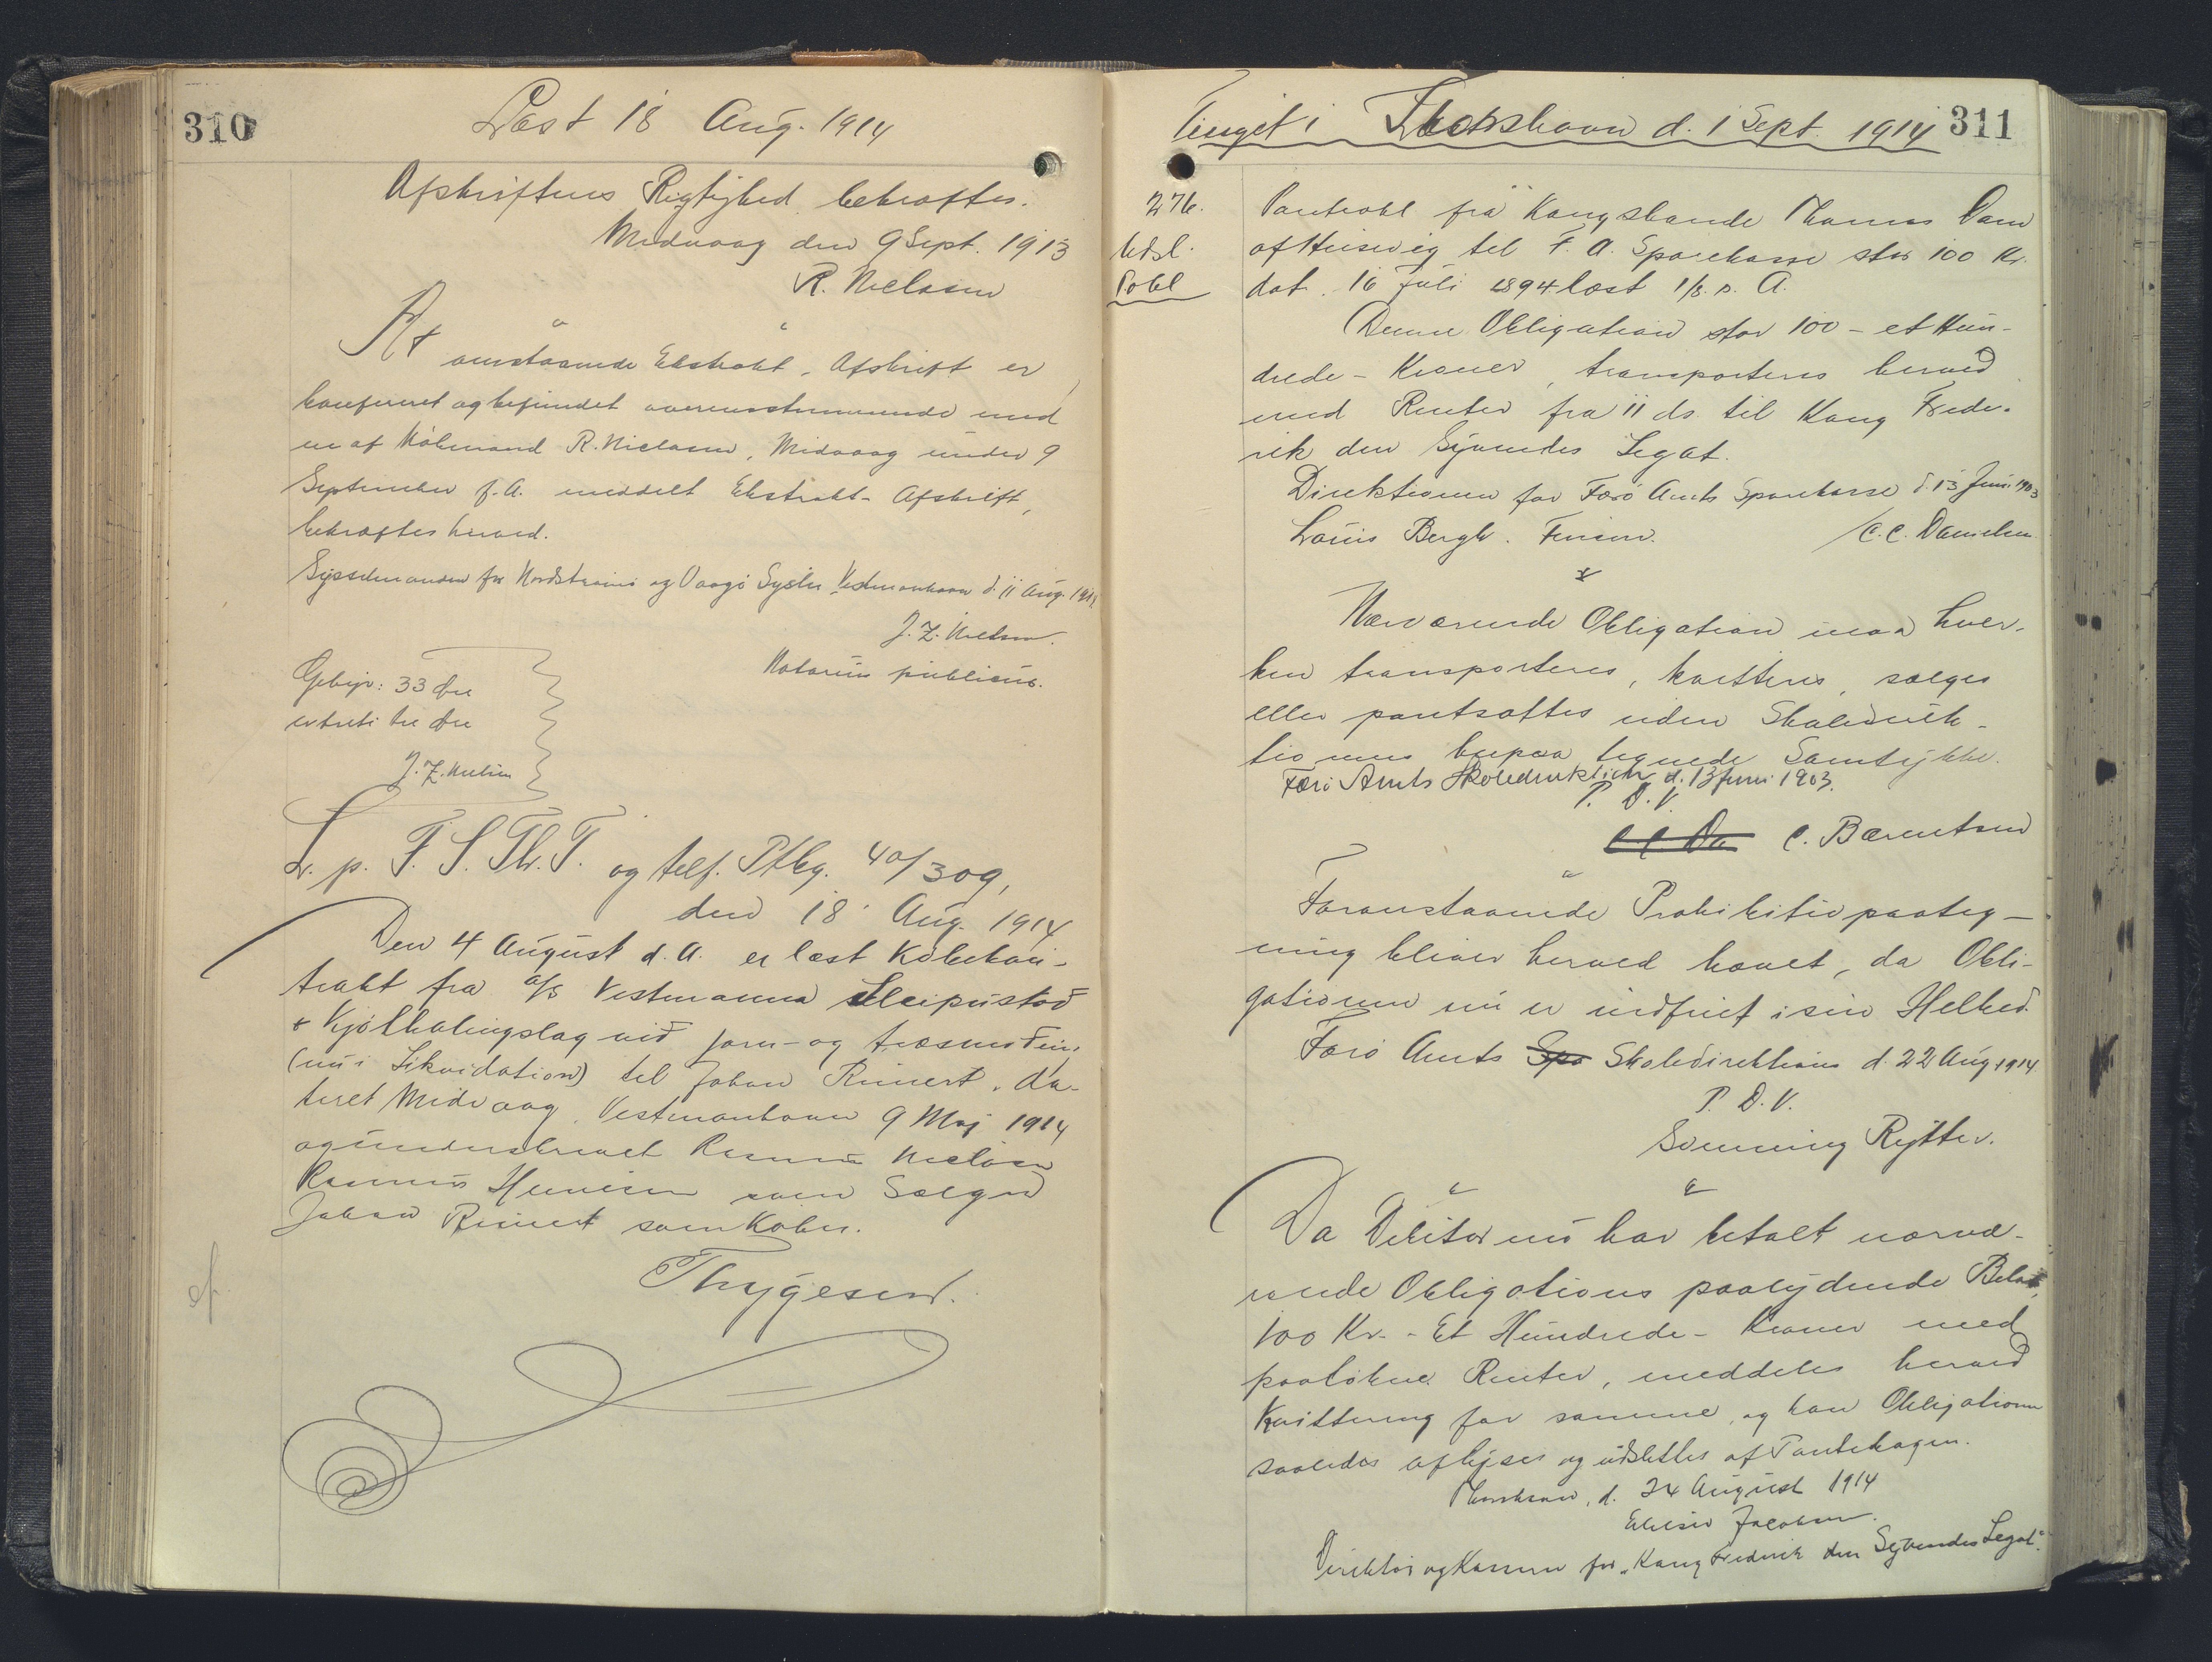 310
Læst 18 Aug. 1914
Afskriftens Rigtighed bekræftes.
Midvaag den 9 Sept. 1913
R. Nielsen
At omstaaende Ekstrakt-Afskrift er
konfereret og befundet overensstemmende med
en af Mølmand R. Nielsen, Midvaag under 9
September f.A. meddelt Ekstrakt-Afskrift,
bekræftes herved.
Sysselmanden for Nordstrømø og Vaagø Sysler Vestmanhavn d. 11 Aug. 1914
J. Z. Nielsen.
Notarius publicus.
Gebyr: 33 Øre
er treti tre Øre
J. Z. Nielsen
L. p. F. S. Th. T. og telf. Ptbg. 40/309,
den 18 Aug. 1914
Den 4 August d.A. er læst Købekon-
trakt fra A/S Vestmanna Sleipistoð
& Kjølhalingslag við jarn- og træsmiðein
(nu i Likvidation) til Johan Reinert, da-
teret Midvaag, Vestmanhavn 9 Maj 1914
og underskrevet Rasmus Nielsen
Rasmus Hennisen som Sælger
Johan Reinert som Køber.
Thygesen.
Tinget i Thorshavn d. 1 Sept. 1914
311
276.
Udsl.
Pobl
Panteobl fra Kongsbonde Thomas Dam
af Husevig til F. A. Sparekasse stor 100 Kr.
dat. 16 Juli 1894 læst 1/8. s. A.
Denne Obligation stor 100 - et Hun-
drede - Kroner, transporteres herved
med Renter fra 11 ds. til Kong Frede-
rik den Syvendes Legat.
Direktionen for Færø Amts Sparekasse d. 13 Juni 1903
Louis Bergh. Finsen. /C. C. Danielsen
Nærværende Obligation maa hver-
ken transporteres, kvitteres, sælges
eller pantsættes uden Skoledirek-
tionens herpaa tegnede Samtykke.
Færø Amts Skoledirektion d. 13 Juni 1903.
P. D. V.
C. C. Da C. Bærentsen
Foranstaaende Prohibitivpaateg-
ning bliver herved hævet, da Obli-
gationen nu er indfriet i sin Helhed.
Færø Amts Spa Skoledirektion d. 22 Aug 1914
P. D. V.
Svenning Rytter.
Da Debitor nu har betalt nærvæ-
rende Obligations paalydende Beløb,
100 Kr. - Et Hundrede - Kroner med
paaløbne Renter, meddeles herved
Kvittering for samme, og kan Obligationen
saaledes aflyses og udslettes af Pantebogen.
Thorshavn, d. 24 August 1914
Jacobsen.
Direktør og Kasserer for "Kong Frederik den Syvendes Legat".